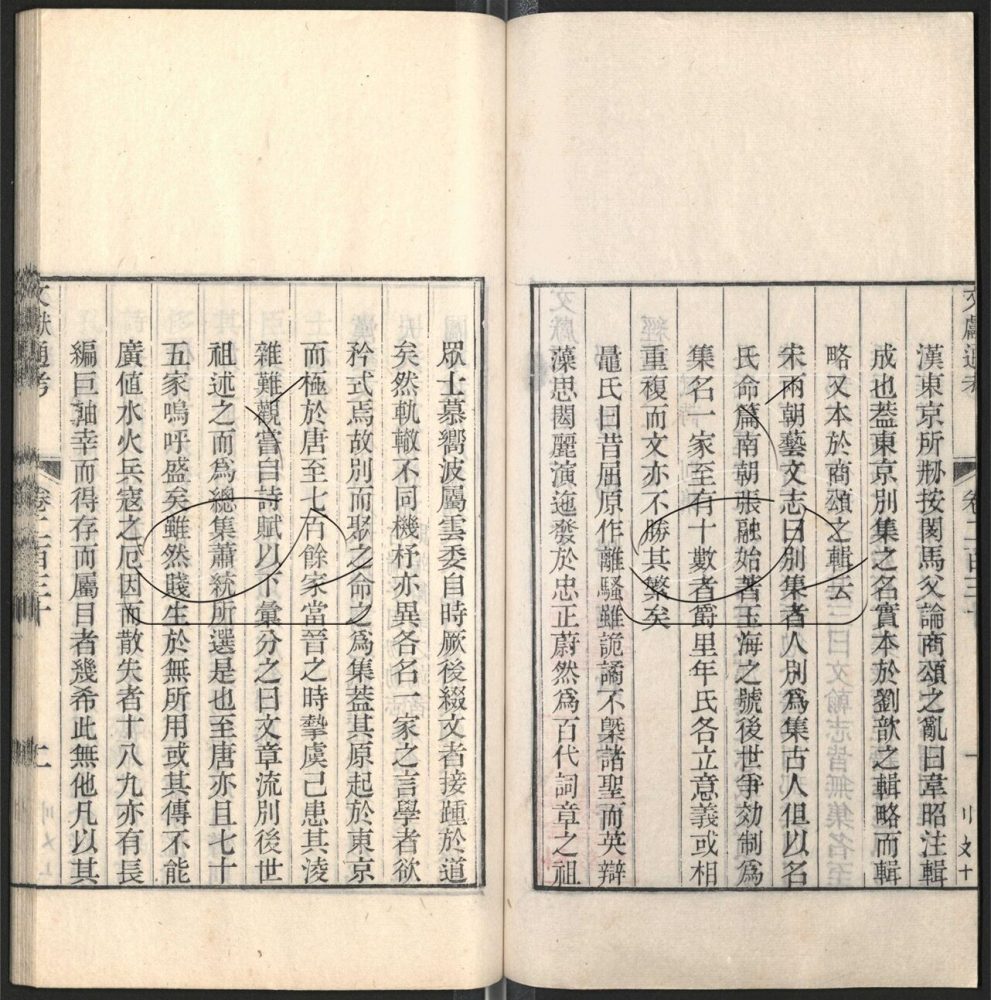 文獻通考 卷二百三十 一
漢東京所剏按閔馬父論商頌之亂曰韋昭注輯
成也葢東京別集之名實本於劉歆之輯略而輯
略又本於商頌之輯云
宋兩朝藝文志曰別集者人別爲集古人但以名
氏命篇南朝張融始著玉海之號後世爭効制爲
集名一家至有十數者爵里年氏各立意義或相
重複而文亦不勝其繁矣
鼂氏曰昔屈原作離騷雖詭譎不槩諸聖而英辯
藻思閎麗演迤發於忠正蔚然爲百代詞章之祖
眾士慕嚮波屬雲委自時厥後綴文者接踵於道
矣然軌轍不同機杼亦異各名一家之言學者欲
矜式焉故別而聚之命之爲集葢其原起於東京
而極於唐至七百餘家當晉之時摯虞已患其淩
雜難觀嘗自詩賦以下彙分之曰文章流別後世
祖述之而爲總集蕭統所選是也至唐亦且七十
五家嗚呼盛矣雖然賤生於無所用或其傳不能
廣値水火兵寇之厄因而散失者十八九亦有長
編巨軸幸而得存而屬目者幾希此無他凡以其
文獻通考 卷二百三十 二